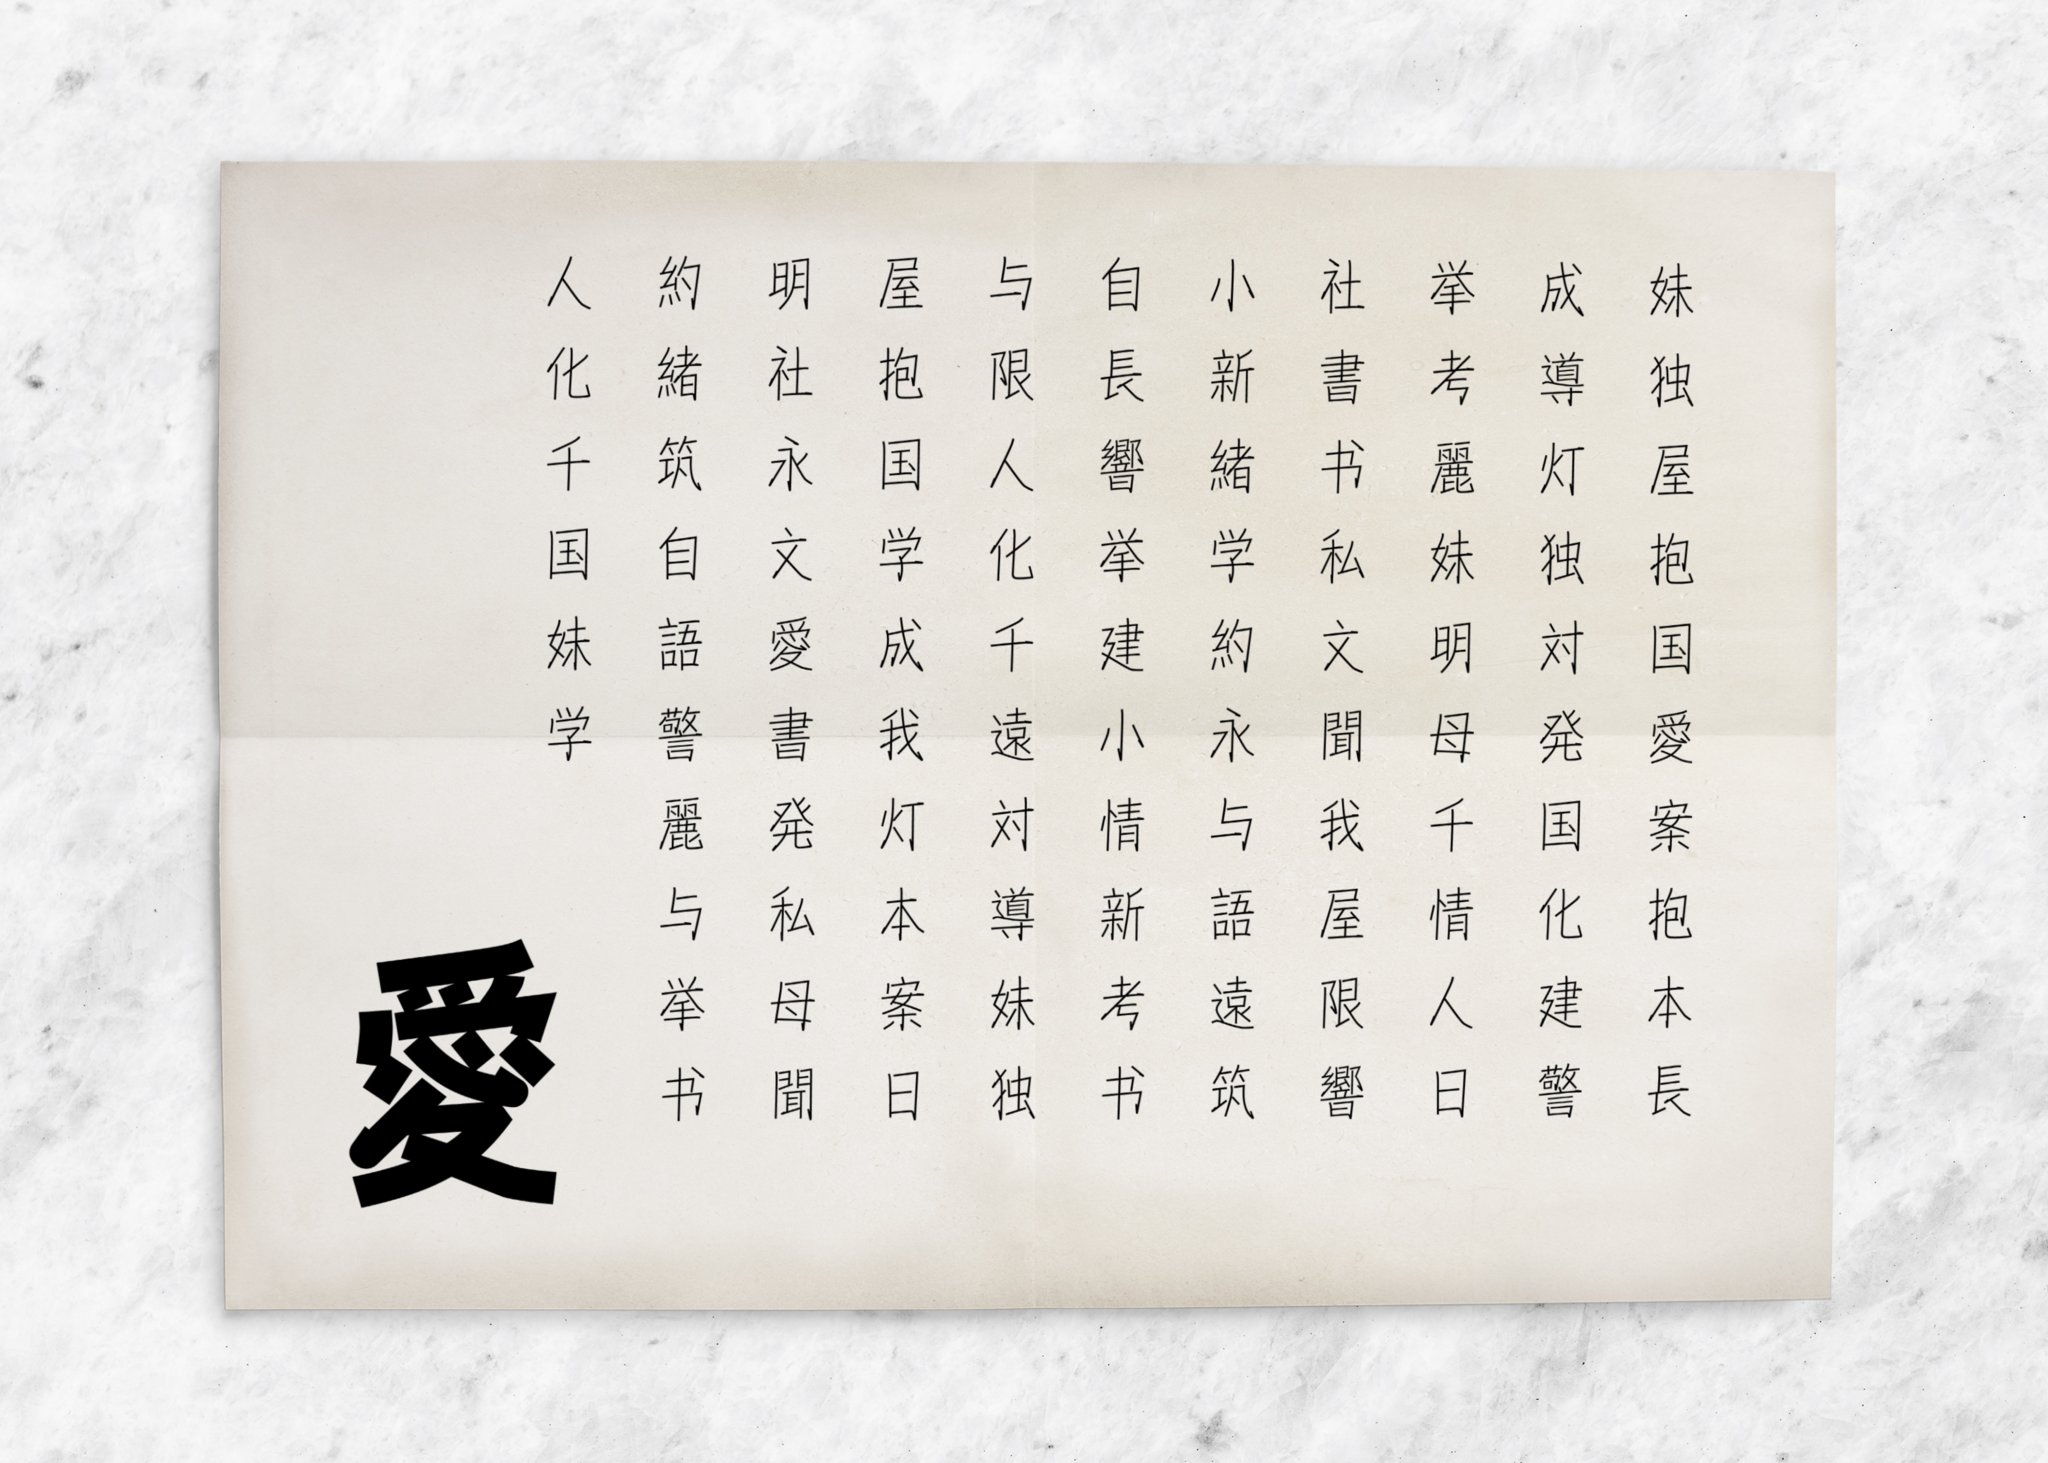 妹独屋抱国愛案抱本長
成導灯独対発国化建警
挙考麗妹明母千情人日
社書书私文聞我屋限響
小新緒学約永与語遠筑
自長響挙建小情新考书
与限人化千遠対導妹独
屋抱国学成我灯本案日
明社永文愛書発私母聞
約緒筑自語警麗与挙书
人化千国妹学
愛